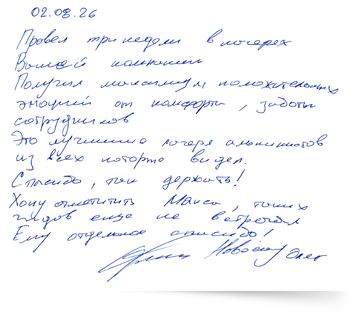 02.08.26
Провел три недели в лагерях
Вашей компании
Получил максимум положительных
эмоций от комфорта, заботы
сотрудников
Это лучшие лагеря альпинистов
из всех которые видел.
Спасибо, так держать!
Хочу отметить Макса, таких
гидов еще не встречал
Ему отдельное спасибо!
Олег